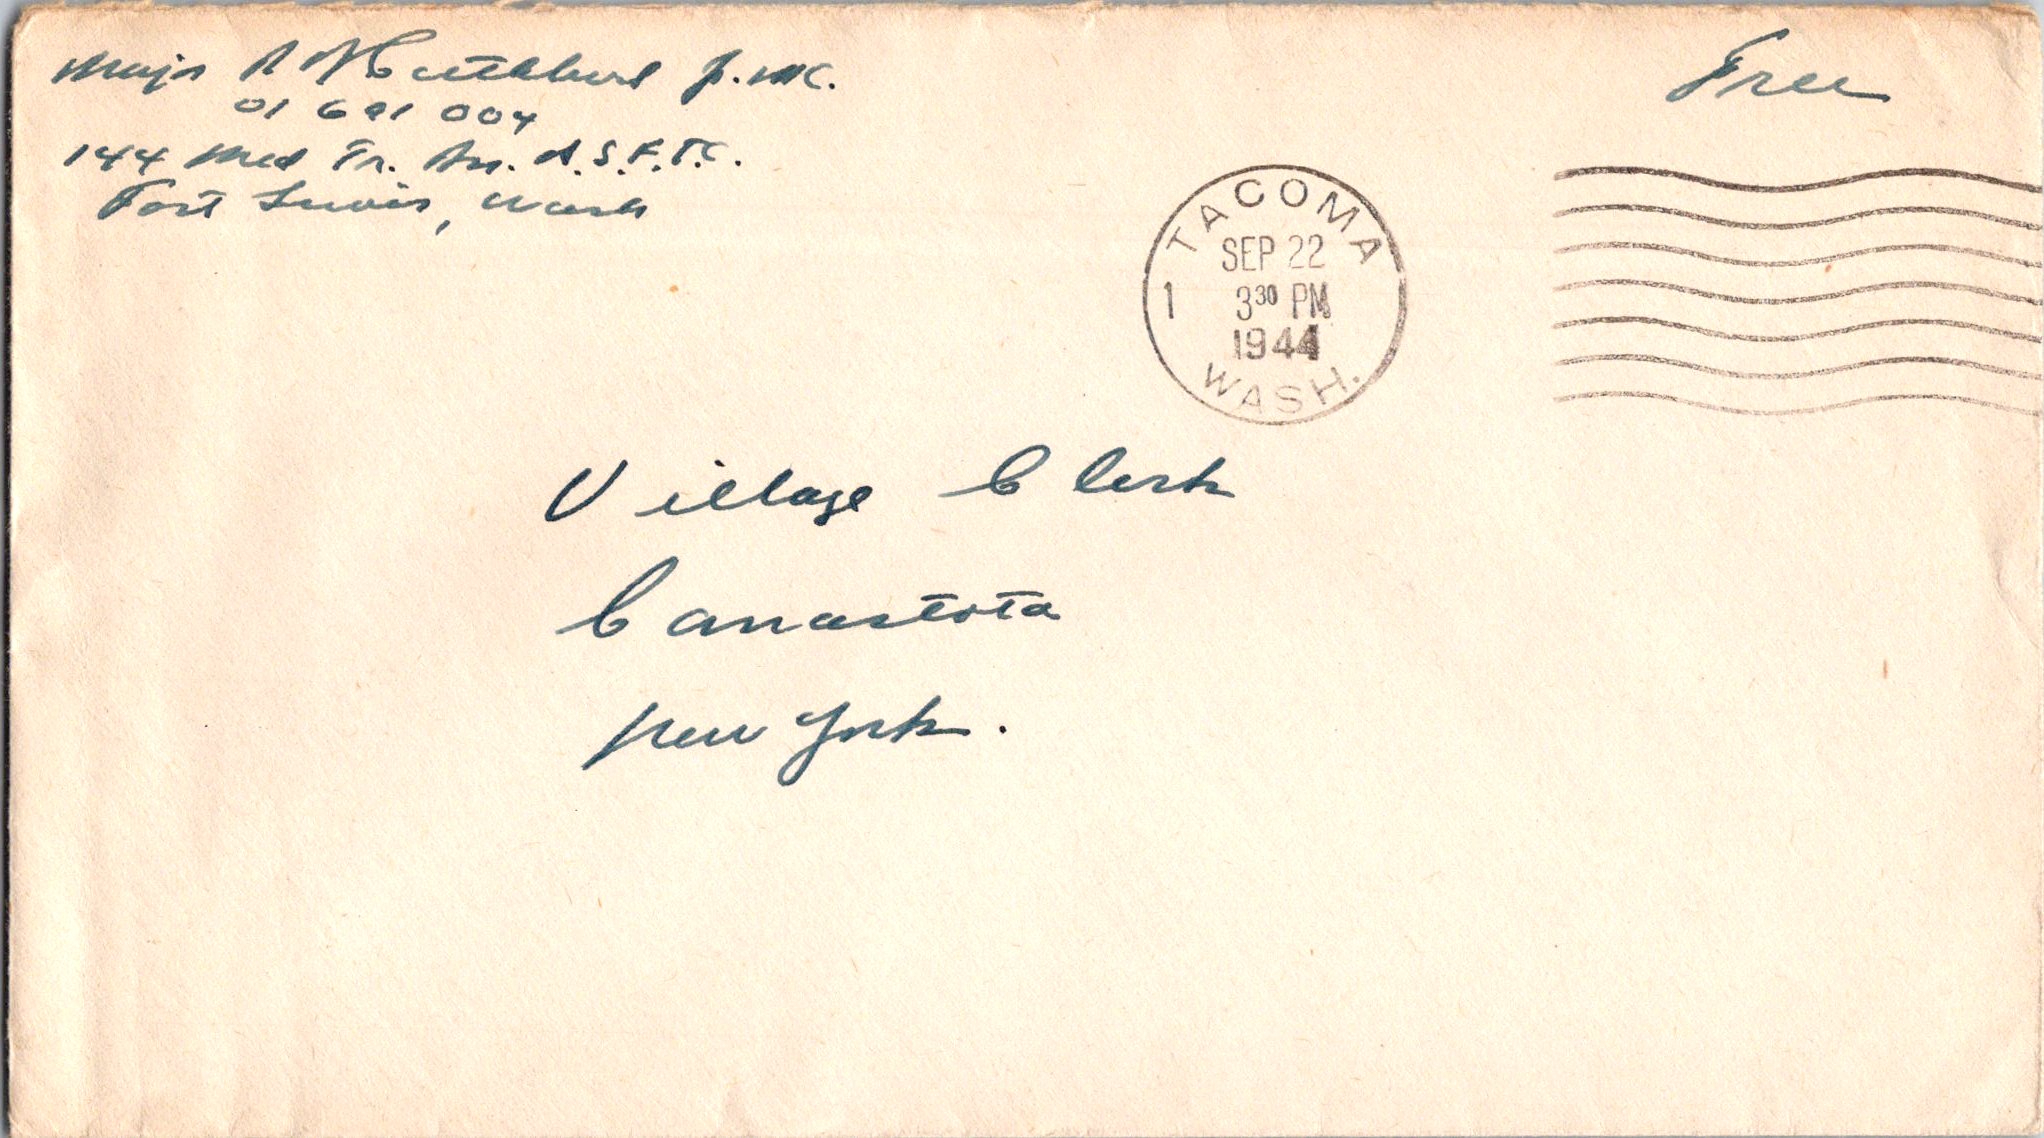 Major R H Cuthbert Jr. MC.
Free
01 691 004
144 Med Tr. Bn. A.S.F.T.C.
Fort Lewis, Wash
TACOMA
SEP 22
1 3 30 PM
1944
WASH.
Village Clerk
Canastota
New York.